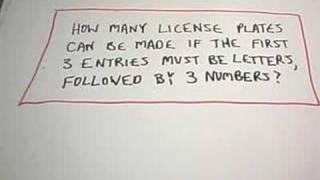 HOW MANY LICENSE PLATES
CAN BE MADE IF THE FIRST
3 ENTRIES MUST BE LETTERS,
FOLLOWED BY 3 NUMBERS?